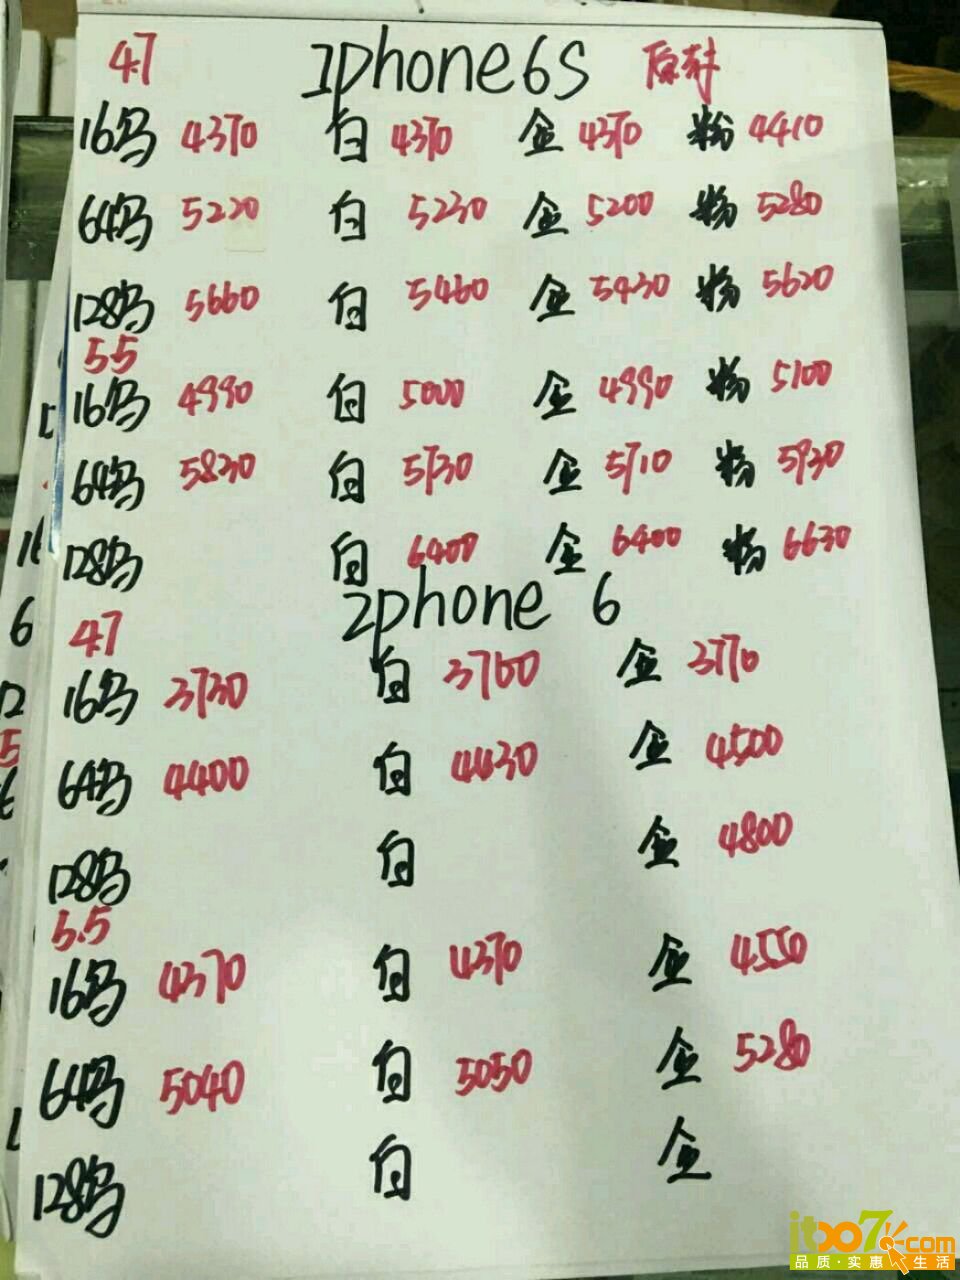 4.7 iphone6s 原封
16鸟 4370 白 4370 金 4370 粉 4410
64鸟 5220 白 5230 金 5200 粉 5280
128鸟 5660 白 5460 金 5430 粉 5620
5.5
16鸟 4990 白 5000 金 4990 粉 5100
64鸟 5830 白 5730 金 5710 粉 5930
128鸟 白 6400 金 6400 粉 6630
iphone 6
4.7
16鸟 3730 白 3760 金 3770
64鸟 4400 白 4430 金 4500
128鸟 白 金 4800
5.5
16鸟 4370 白 4370 金 4550
64鸟 5040 白 5050 金 5280
128鸟 白 金
it007.com
品质·实惠·生活